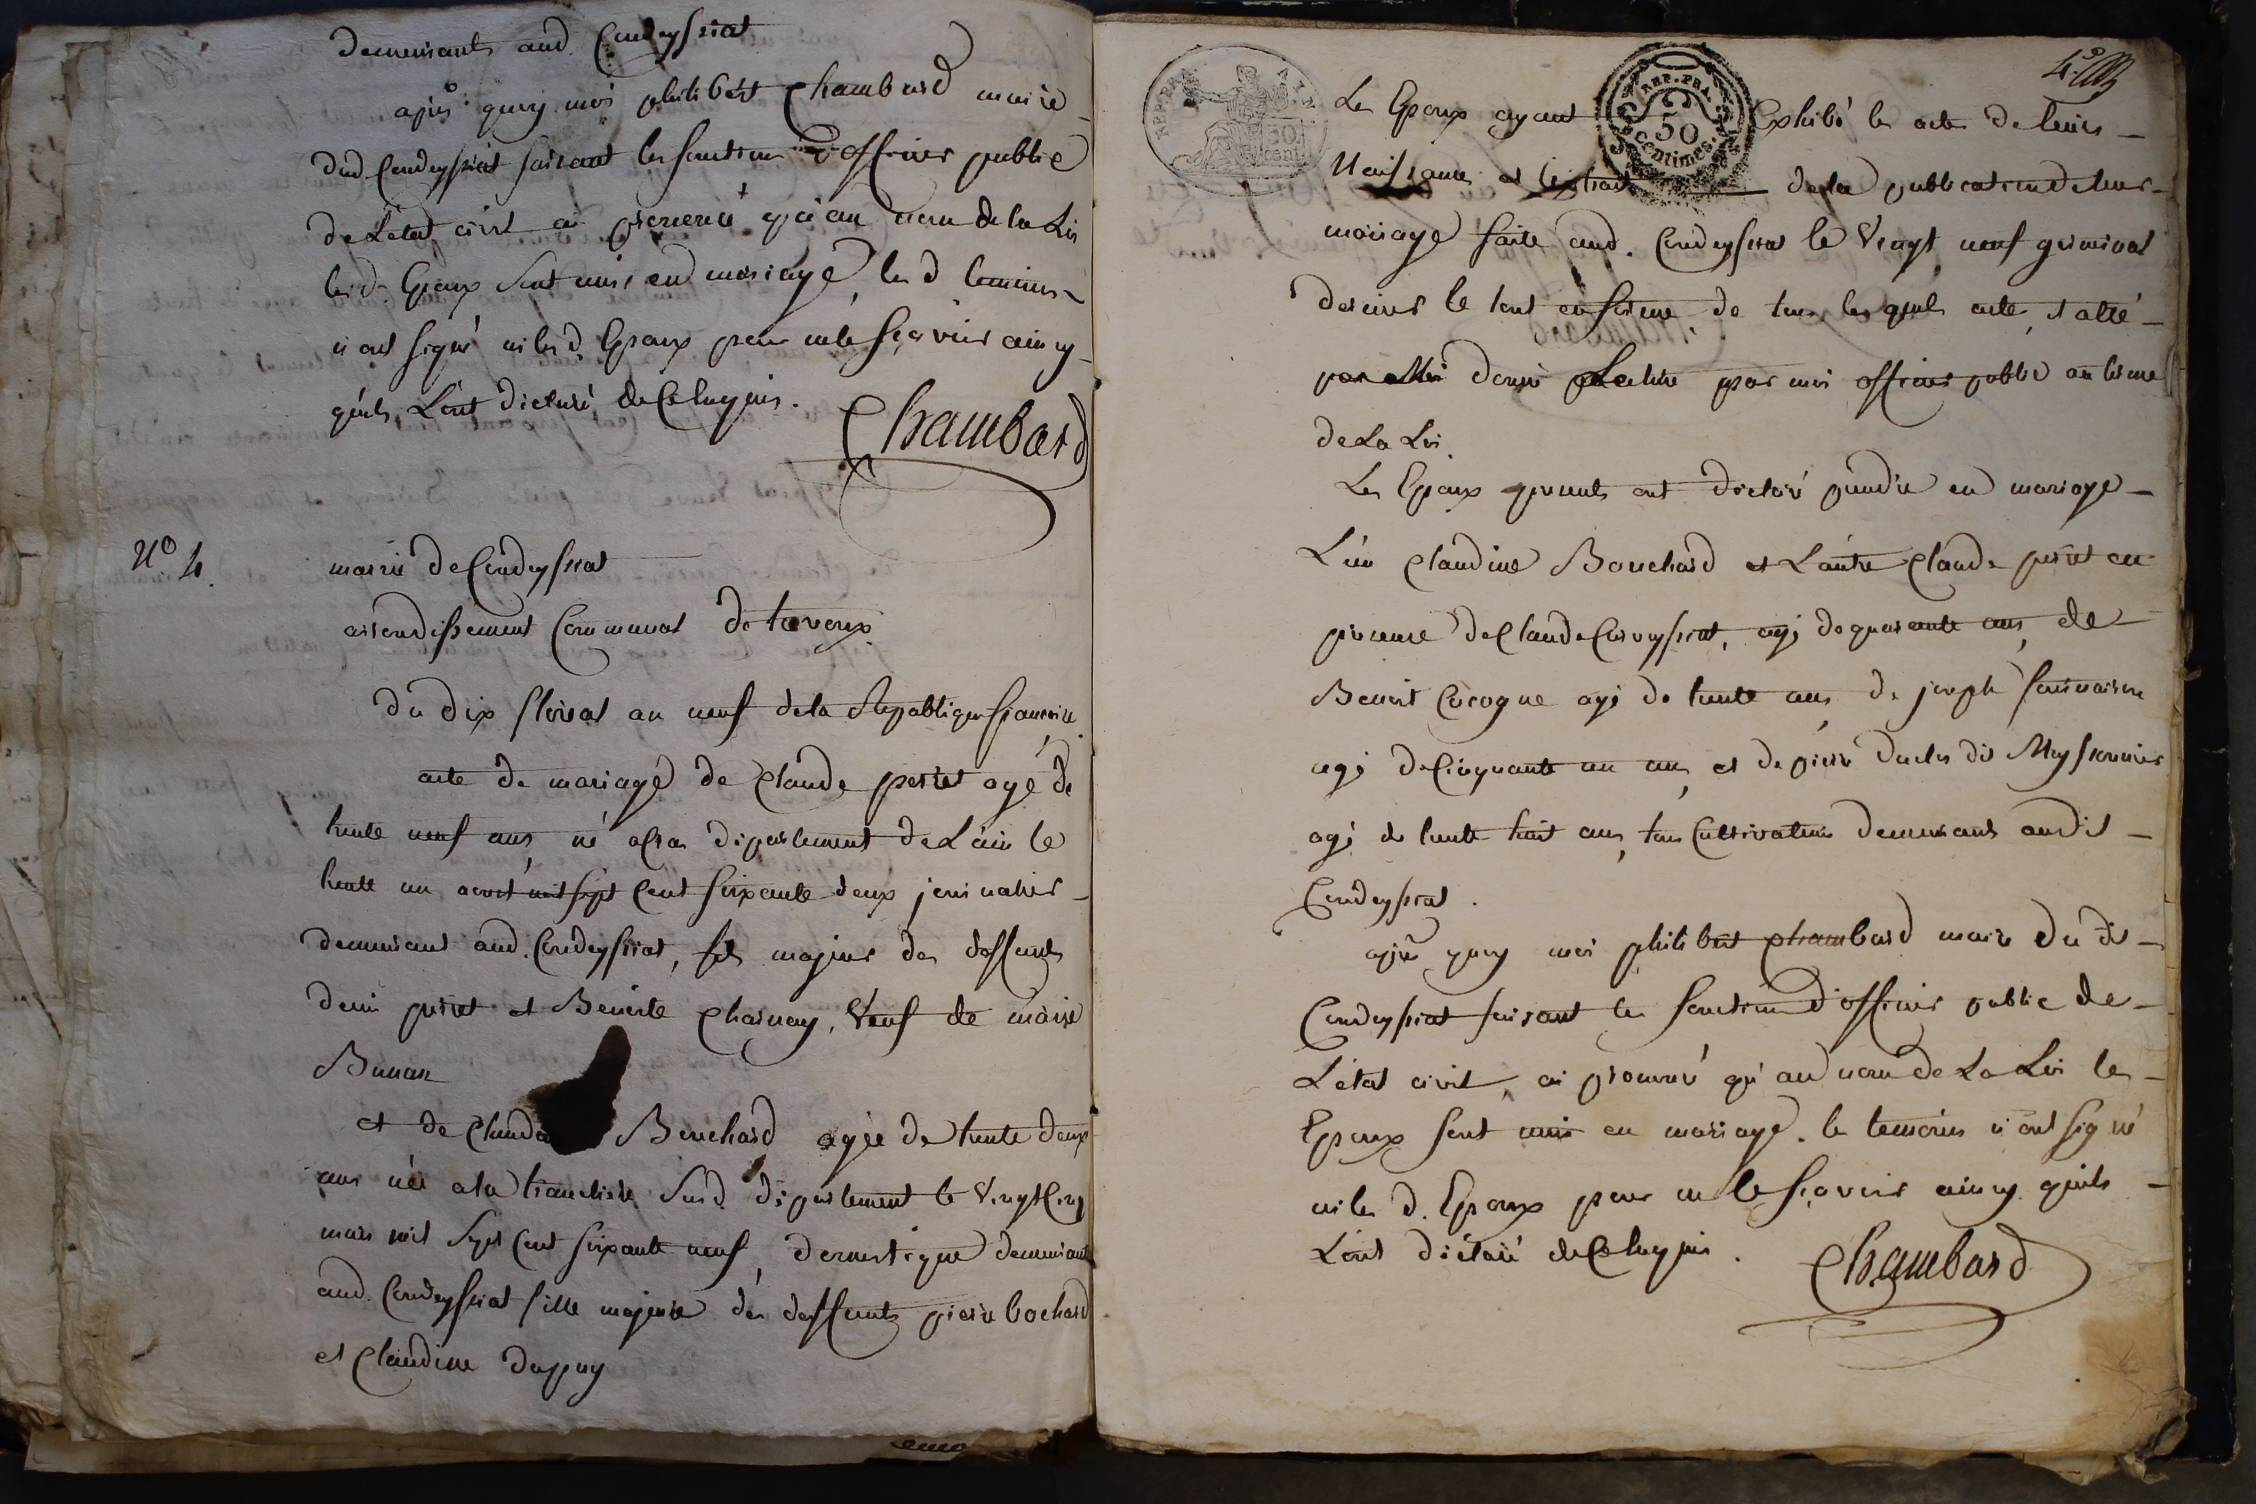 demeurants aud. Condeyssiat
après quoy moi philibert Chambard maire
dud Condeyssiat faisant les fonctions d'officier public
de L'état civil ai prononcé qu'au nom de la Loi
lesd. Epoux sont unis en mariage, les d temoins
n'ont signé ni lesd. Epoux pour ne le sçavoir ainsy
qu'ils L'ont déclaré de ce requis.
Chambard
N.° 4.
mairie de Condeyssiat
arrondissement Communal de trevoux
du dix floreal an neuf de la Republique francaise
acte de mariage de Claude perret agé de
trente neuf ans, né a département de L'ain le
trente un aoust mil sept Cent soixante deux journalier
demeurant aud. Condeyssiat, fils majeur des deffunts
denis perret et Benoite Charnay, Veuf de marie
Bunan
et de Bouchard agée de trente deux
ans née a la tranclière Susd. département le Vingt Cinq
mars mil Sept Cent soixante neuf, domestique demeurante
aud. Condeyssiat fille majeure des deffunts pierre bochard
et Claudine dupuy
4.e
REP. FRA.
50 cent
REP. FRA.
50
centimes.
Les Epoux ayant Exhibé les actes de leurs
Naissances et L'extrait de la publication de leur
mariage faite aud. Condeyssiat le Vingt neuf germinal
dernier le tout en forme de tous lesquels actes, il a été
par Moi donné Lecture par moi officier public au terme
de La Loi.
Les Epoux presents ont déclaré prendre en mariage
L'un Claudine Bouchard et L'autre Claude perret en
presence de Claude Corveyssiat, agé de quarante ans, de
Benoit Cocogne agé de trente ans, de joseph
agé de Cinquante un ans, et de pierre duclos dit Meyssonnier
agé de trente huit ans, tous Cultivateurs demeurants audit
Condeyssiat.
après quoy moi philibert Chambard maire du dit
Condeyssiat faisant les fonctions d'officier public de
L'état civil, ai prononcé qu'au nom de La Loi les
Epoux sont unis en mariage. les temoins n'ont signé
ni les d. Epoux pour ne le sçavoir ainsy qu'ils
L'ont déclaré de ce requis.
Chambard